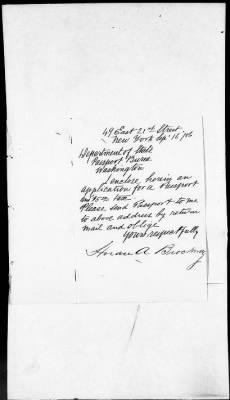 49 East 21st Street
New York Sep' 16'/96
Department of State
Passport Bureau
Washington
I enclose, herein an
application for a Passport
Please send Passport to me
to above address by return
mail and oblige
Yours respectfully
Horace A Brockway